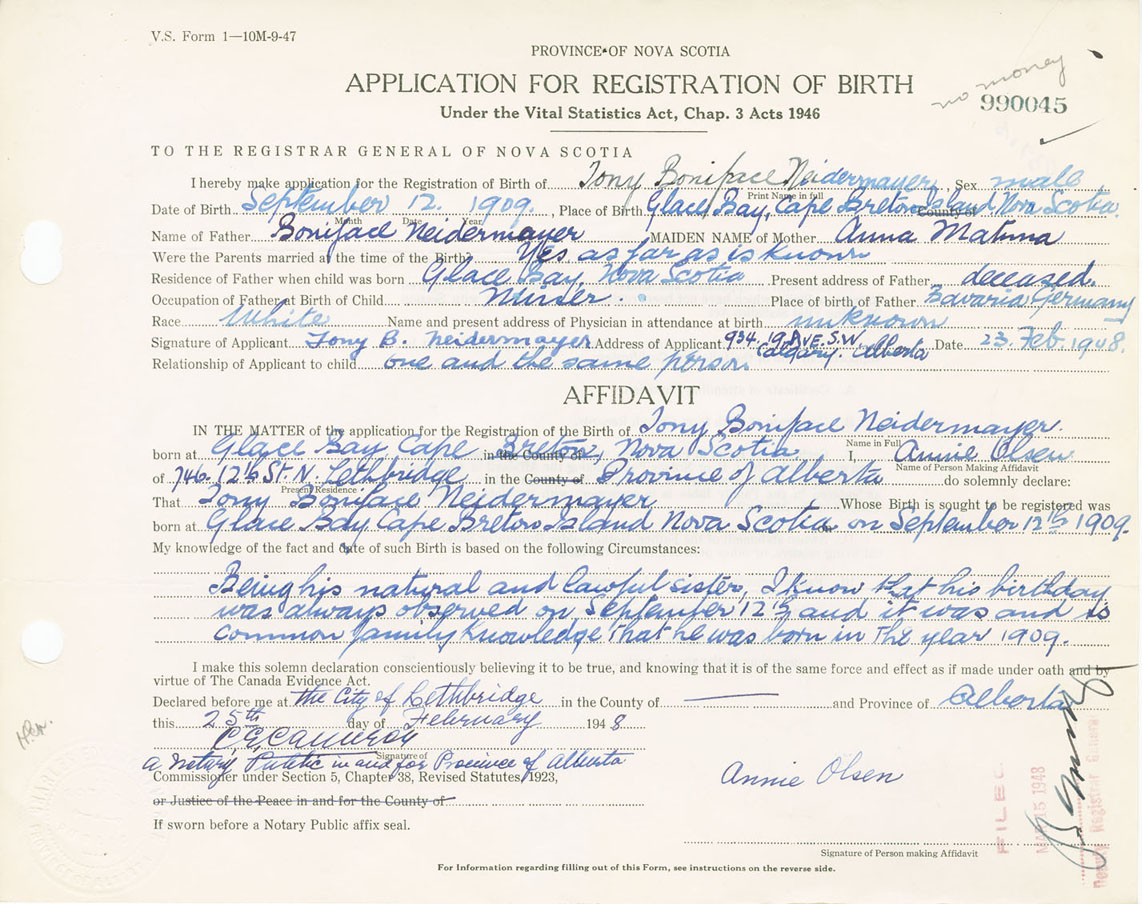 V.S. Form 1—10M-9-47
PROVINCE OF NOVA SCOTIA
no money
APPLICATION FOR REGISTRATION OF BIRTH
990045
Under the Vital Statistics Act, Chap. 3 Acts 1946
TO THE REGISTRAR GENERAL OF NOVA SCOTIA
I hereby make application for the Registration of Birth of Tony Boniface Neidermayer, Sex male
Print Name in full
Date of Birth September 12. 1909. , Place of Birth Glace Bay, Cape Breton Island, Nova Scotia.
County of
Month Date Year
Name of Father Boniface Neidermayer MAIDEN NAME of Mother Anna Matuna
Were the Parents married at the time of the Birth? Yes as far as is known
Residence of Father when child was born Glace Bay, Nova Scotia Present address of Father deceased.
Occupation of Father at Birth of Child Miner. Place of birth of Father Bavaria Germany
Race White Name and present address of Physician in attendance at birth unknown
Signature of Applicant Tony B. Neidermayer Address of Applicant 934. 19 AVE. S.W. Calgary. Alberta Date 23 Feb. 1948.
Relationship of Applicant to child one and the same person.
AFFIDAVIT
IN THE MATTER of the application for the Registration of the Birth of Tony Boniface Neidermayer.
Name in Full
born at Glace Bay Cape in the County of Breton, Nova Scotia I, Annie Olsen
Name of Person Making Affidavit
of 746. 12th St. N. Lethbridge in the County of Province of Alberta do solemnly declare:
Present Residence
That Tony Boniface Neidermayer Whose Birth is sought to be registered was
born at Glace Bay Cape Breton Island Nova Scotia on September 12th 1909.
My knowledge of the fact and date of such Birth is based on the following Circumstances:
Being his natural and lawful sister, I know that his birthday
was always observed on September 12th and it was and is
common family knowledge that he was born in the year 1909.
I make this solemn declaration conscientiously believing it to be true, and knowing that it is of the same force and effect as if made under oath and by
virtue of The Canada Evidence Act.
Declared before me at the City of Lethbridge in the County of — and Province of Alberta
this 25th day of February 1948
C E Cameron
Signature of
a Notary Public in and for Province of Alberta
Commissioner under Section 5, Chapter 38, Revised Statutes 1923,
Annie Olsen
or Justice of the Peace in and for the County of
If sworn before a Notary Public affix seal.
Signature of Person making Affidavit
For Information regarding filling out of this Form, see instructions on the reverse side.
FILED
MAR 15 1948
Deputy Registrar General